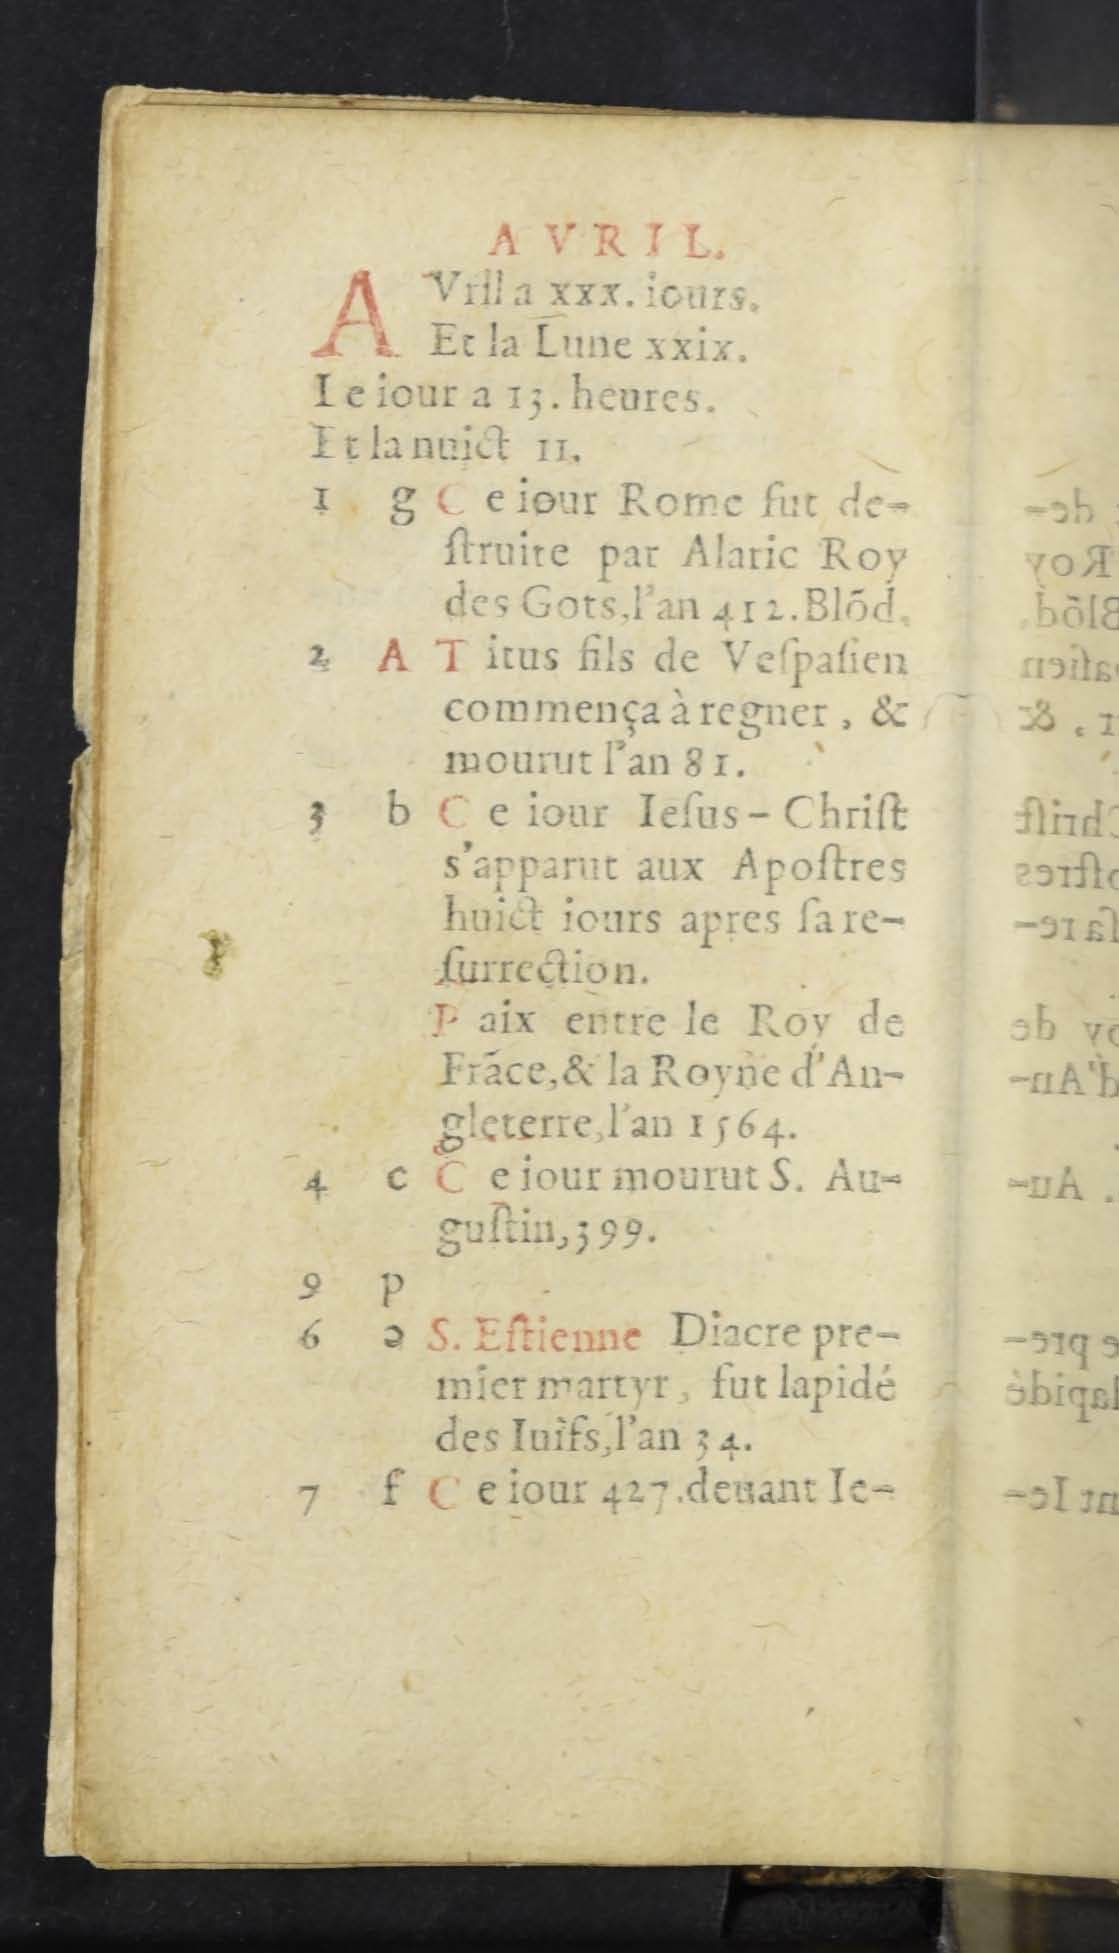 AVRIL.
AVril a xxx. iours.
Et la Lune xxix.
Le iour a 13. heures.
Et la nuict 11.
1 g Ce iour Rome fut de-
ſtruite par Alaric Roy
des Gots, l'an 412. Blōd.
2 A Titus fils de Veſpaſien
commença à regner, &
mourut l'an 81.
3 b Ce iour Ieſus-Chriſt
s'apparut aux Apoſtres
huict iours apres ſa re-
ſurrection.
Paix entre le Roy de
Frāce, & la Royne d'An-
gleterre, l'an 1564.
4 c Ce iour mourut S. Au-
guſtin, 399.
9 p
6 ə S. Eſtienne Diacre pre-
mier martyr, fut lapidé
des Iuifs, l'an 34.
7 f Ce iour 427. deuant Ie-